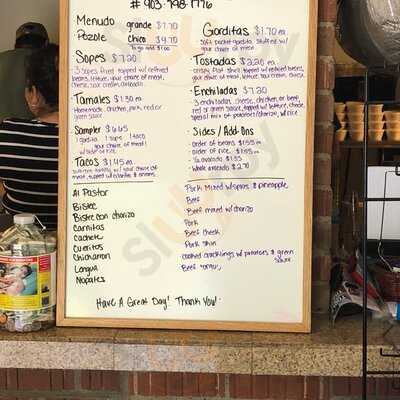 # 903-798-1776
Menudo grande $7.70
Pozole Chico $4.70
To go add $1.00
Gorditas $1.70 ea.
soft pocket gordita stuffed w/
your choice of meat
Sopes $7.20
3 sopes topped w/ refried
beans, lettuce, your choice of meat,
cheese, sour cream, avocado.
Tostadas $2.20 ea.
crispy flat shell topped w/ refried beans,
your choice of meat, lettuce, sour cream, cheese.
Tamales $1.30 ea.
Homemade, chicken, pork, red or
green sauce
Enchiladas $7.20
3 enchiladas, cheese, chicken or beef,
red or green sauce, topped w/ lettuce, cheese,
special mix of potatoes/carrots, w/ rice
Sampler $6.45
1 gordita 1 sope 1 taco
your choice of meat!
w/ side of rice
Sides / Add-Ons
order of beans $1.55
order of rice $1.55
1/2 avocado $1.35
Whole avocado $2.70
Tacos $1.45 ea
your choice of
meat, topped w/ cilantro & onions.
Al Pastor Pork Mixed w/ spices & pineapple
Bistec Beef
Bistec con chorizo Beef mixed w/ chorizo
Carnitas Pork
Cachete Beef cheek
Cueritos Pork skin
Chicharron cooked cracklings w/ potatoes & green
sauce
Lengua Beef tongue
Nopales
Have A Great Day! Thank You!